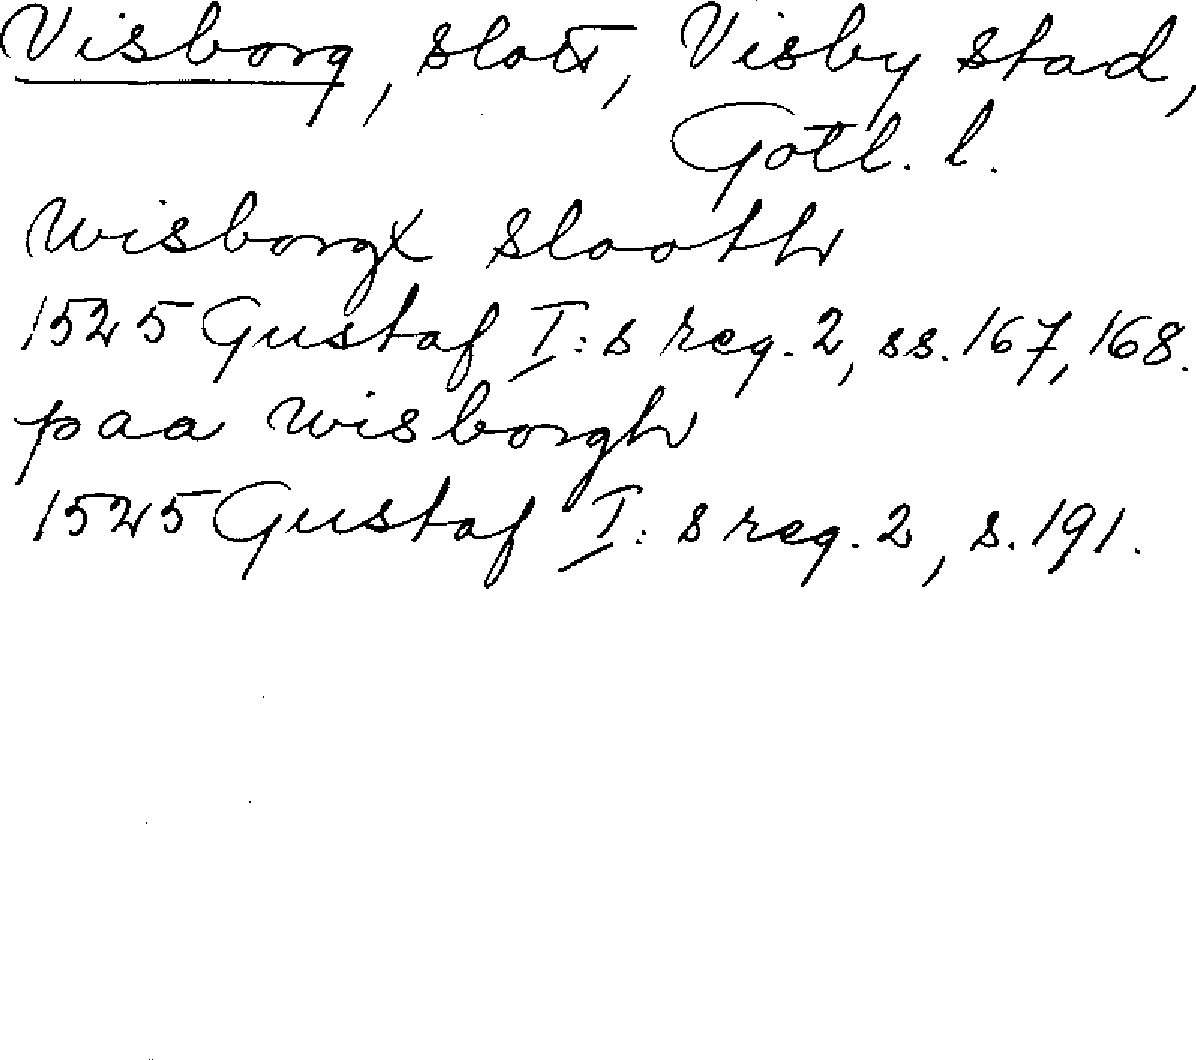 Visborg, slott, Visby stad,
Gotl. l.
Wisborgx slooth
1525 Gustaf I:s reg. 2, ss. 167, 168.
paa Wisborgh
1525 Gustaf I:s reg. 2, s. 191.